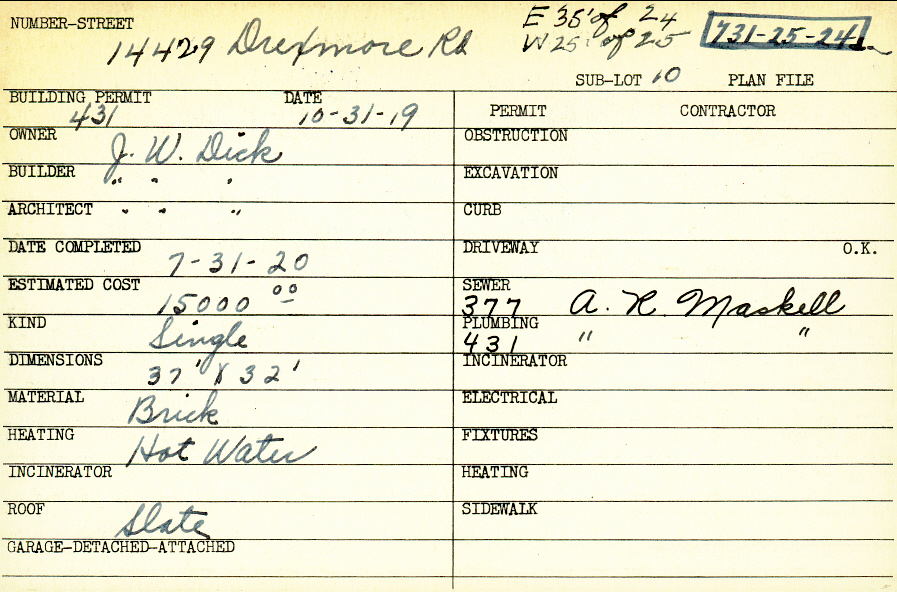 NUMBER-STREET
14429 Drexmore Rd
E 35' of 24
W 25' of 25
731-25-24
SUB-LOT 10 PLAN FILE
BUILDING PERMIT DATE
431 10-31-19
OWNER J. W. Dick
BUILDER " " "
ARCHITECT " " "
DATE COMPLETED
7-31-20
ESTIMATED COST
15000 00
KIND Single
DIMENSIONS
37' X 32'
MATERIAL Brick
HEATING Hot Water
INCINERATOR
ROOF Slate
GARAGE-DETACHED-ATTACHED
PERMIT CONTRACTOR
OBSTRUCTION
EXCAVATION
CURB
DRIVEWAY O.K.
SEWER
377 A. R. Maskell
PLUMBING
431 " "
INCINERATOR
ELECTRICAL
FIXTURES
HEATING
SIDEWALK